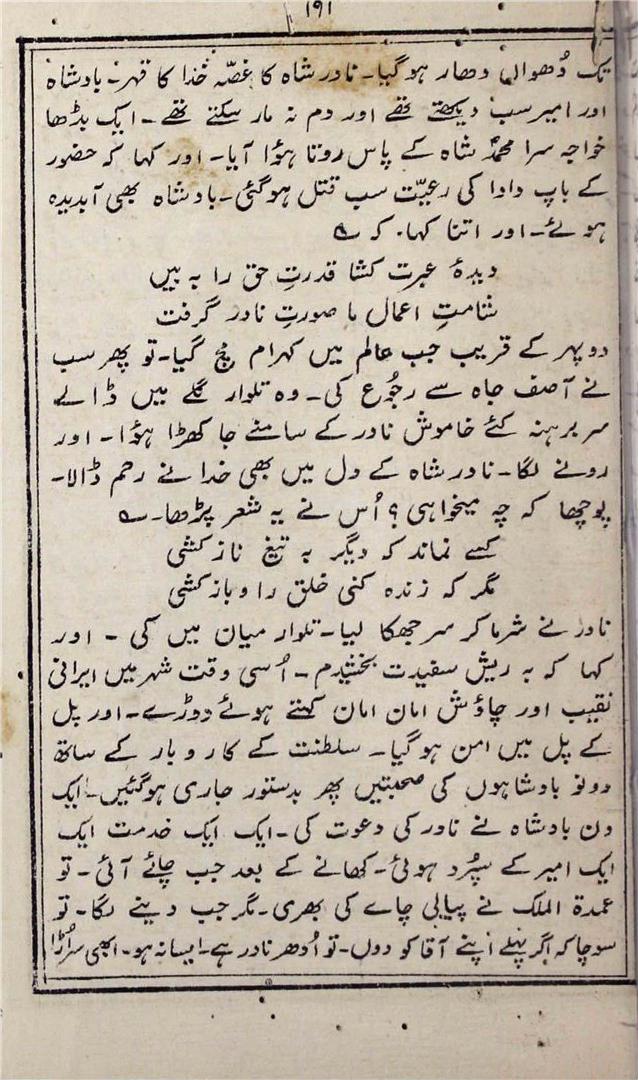 ۱۹۱
تک دُھواں دھار ہو گیا۔ نادر شاہ کا غصّہ خدا کا قہر۔ بادشاہ
اور امیر سب دیکھتے تھے اور دم نہ مار سکتے تھے۔ ایک بڈھا
خواجہ سرا محمدؐ شاہ کے پاس روتا ہؤا آیا۔ اور کہا کہ حضور
کے باپ دادا کی رعیّت سب قتل ہوگئی۔ بادشاہ بھی آبدیدہ
ہوئے۔ اور اتنا کہا۔ کہ ؎
دیدۂ عبرت کشا قدرتِ حق را بہ بیں
شامتِ اعمال ما صورتِ نادر گرفت
دوپہر کے قریب جب عالم میں کہرام مچ گیا۔ تو پھر سب
نے آصف جاہ سے رجُوع کی۔ وہ تلوار گلے میں ڈالے
سر برہنہ کئے خاموش نادر کے سامنے جا کھڑا ہؤا۔ اور
رونے لگا۔ نادر شاہ کے دل میں بھی خدا نے رحم ڈالا۔
پوچھا کہ چہ میخواہی؟ اُس نے یہ شعر پڑھا۔ ؎
کسے نماند کہ دیگر بہ تیغ ناز کشی
مگر کہ زندہ کنی خلق را و باز کشی
نادر نے شرما کر سر جھکا لیا۔ تلوار میان میں کی۔ اور
کہا کہ بہ ریش سفیدت بخشیدم۔ اُسی وقت شہر میں ایرانی
نقیب اور چاؤش امان امان کہتے ہوئے دوڑے۔ اور پل
کے پل میں امن ہو گیا۔ سلطنت کے کار و بار کے ساتھ
دونو بادشاہوں کی صحبتیں پھر بدستور جاری ہوگئیں۔ ایک
دن بادشاہ نے نادر کی دعوت کی۔ ایک ایک خدمت ایک
ایک امیر کے سپُرد ہوئی۔ کھانے کے بعد جب چائے آئی۔ تو
عمدۃ الملک نے پیالی چاے کی بھری۔ مگر جب دینے لگا۔ تو
سوچا کہ اگر پہلے اپنے آقا کو دوں۔ تو اُدھر نادر ہے۔ ایسا نہ ہو۔ ابھی سر اُڑا